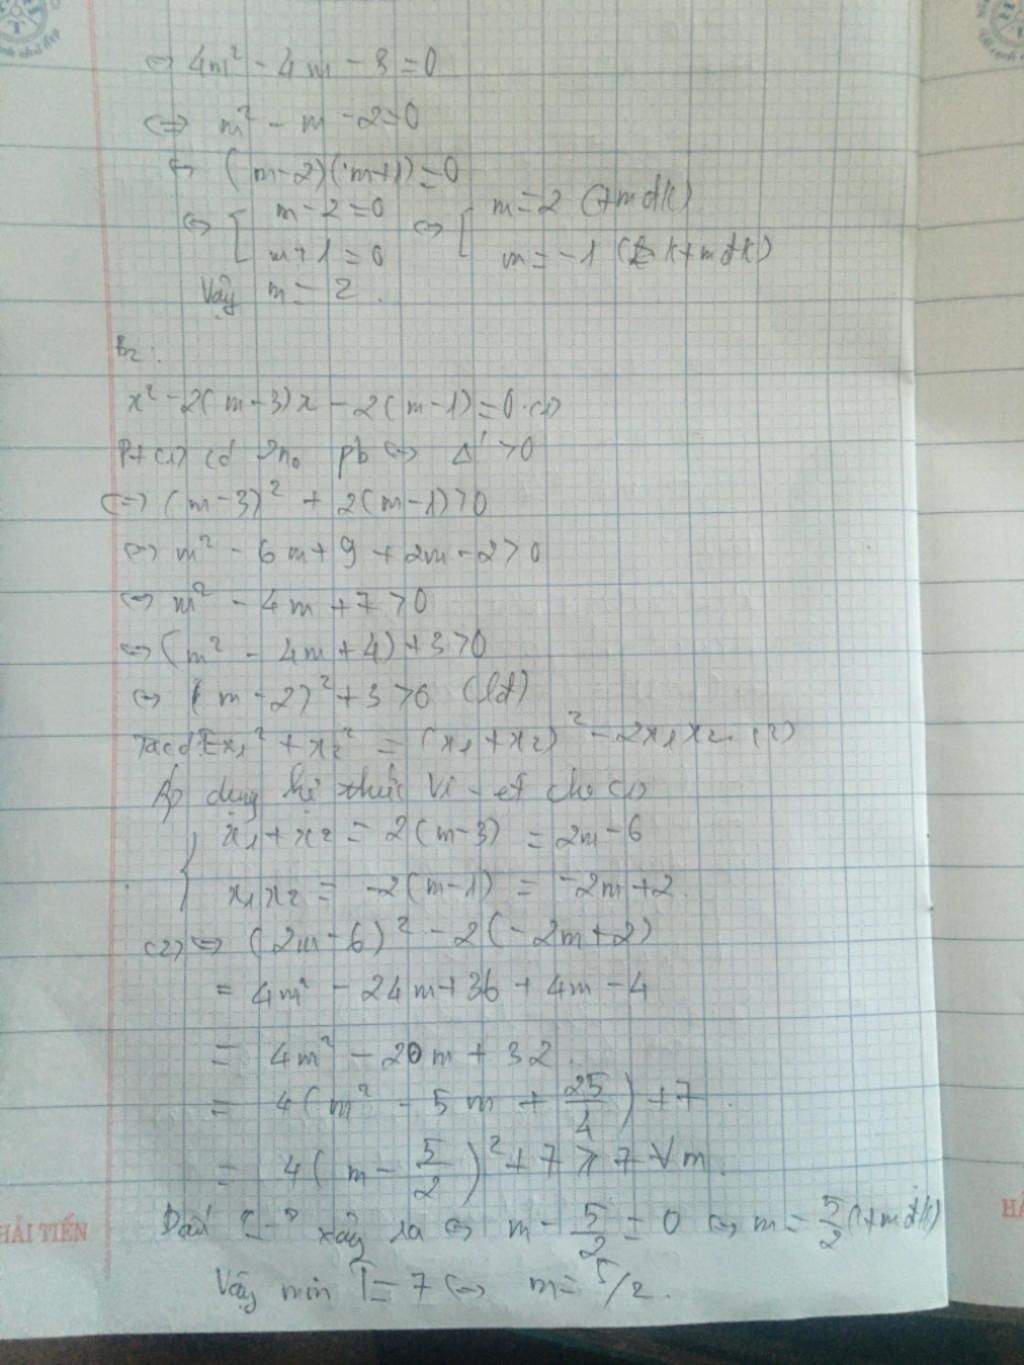 ⇔ 4m² - 4m - 8 = 0
⇔ m² - m - 2 = 0
⇔ (m-2)(m+1) = 0
⇔ [ m - 2 = 0 ⇔ [ m = 2 (+mđk)
m + 1 = 0 m = -1 (k+mđk)
Vậy m = 2.
B2:
x² - 2(m-3)x - 2(m-1) = 0 (1)
Pt (1) có 2n₀ pb ⇔ Δ' > 0
⇔ (m-3)² + 2(m-1) > 0
⇔ m² - 6m + 9 + 2m - 2 > 0
⇔ m² - 4m + 7 > 0
⇔ (m² - 4m + 4) + 3 > 0
⇔ (m - 2)² + 3 > 0 (lđ)
Ta có T = x₁² + x₂² = (x₁ + x₂)² - 2x₁x₂. (2)
Áp dụng hệ thức Vi-et cho (1)
{ x₁ + x₂ = 2(m-3) = 2m - 6
x₁x₂ = -2(m-1) = -2m + 2.
(2) ⇔ (2m - 6)² - 2(-2m + 2)
= 4m² - 24m + 36 + 4m - 4
= 4m² - 20m + 32.
= 4(m² - 5m + 25/4) + 7.
= 4(m - 5/2)² + 7 ≥ 7 ∀m.
Dấu "=" xảy ra ⇔ m - 5/2 = 0 ⇔ m = 5/2 (+mđk)
Vậy min T = 7 ⇔ m = 5/2.
HẢI TIẾN